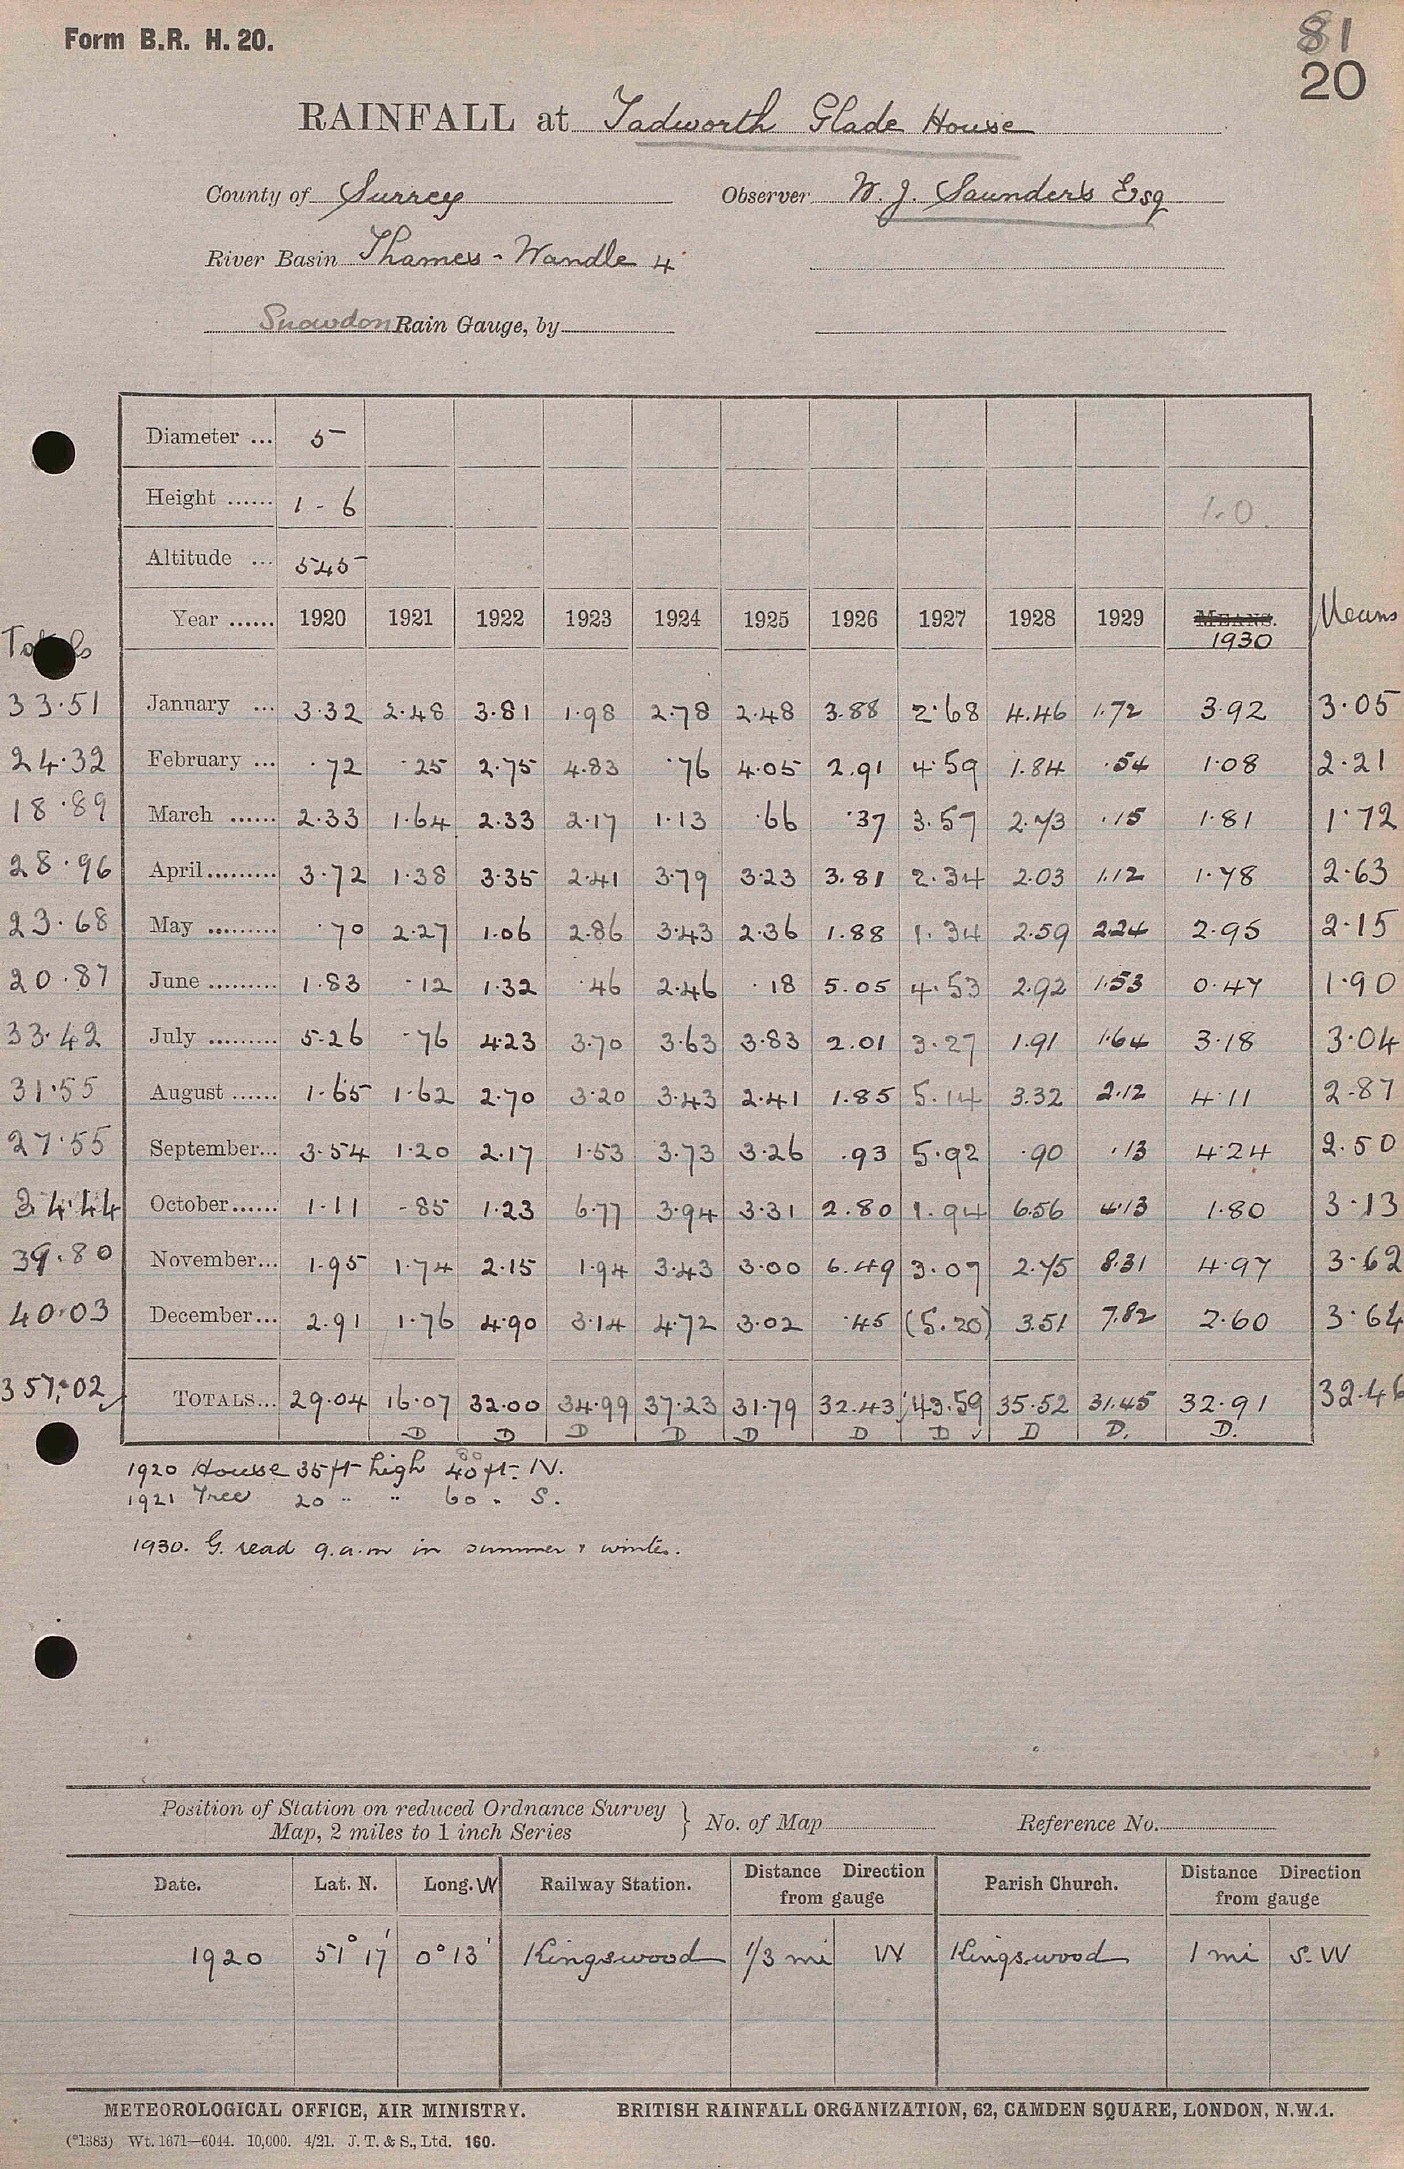 Form B.R. H. 20.
81
20
RAINFALL at Tadworth Glade House
County of Surrey Observer W. J. Saunders Esq
River Basin Thames - Wandle 4
Snowdon Rain Gauge, by
Diameter ... 5
Height ...... 1 - 6 1-0
Altitude ... 545
Year ...... 1920 1921 1922 1923 1924 1925 1926 1927 1928 1929 MEANS. 1930 Means
Totals
33.51 January ... 3.32 2.48 3.81 1.98 2.78 2.48 3.88 2.68 4.46 1.72 3.92 3.05
24.32 February ... .72 .25 2.75 4.83 .76 4.05 2.91 4.59 1.84 .54 1.08 2.21
18.89 March ...... 2.33 1.64 2.33 2.17 1.13 .66 .37 3.57 2.73 .15 1.81 1.72
28.96 April ......... 3.72 1.38 3.35 2.41 3.79 3.23 3.81 2.34 2.03 1.12 1.78 2.63
23.68 May ......... .70 2.27 1.06 2.86 3.43 2.36 1.88 1.34 2.59 2.24 2.95 2.15
20.87 June ......... 1.83 .12 1.32 .46 2.46 .18 5.05 4.53 2.92 1.53 0.47 1.90
33.42 July ......... 5.26 .76 4.23 3.70 3.63 3.83 2.01 3.27 1.91 1.64 3.18 3.04
31.55 August ...... 1.65 1.62 2.70 3.20 3.43 2.41 1.85 5.14 3.32 2.12 4.11 2.87
27.55 September... 3.54 1.20 2.17 1.53 3.73 3.26 .93 5.92 .90 .13 4.24 2.50
34.44 October ...... 1.11 .85 1.23 6.77 3.94 3.31 2.80 1.94 6.56 4.13 1.80 3.13
39.80 November... 1.95 1.74 2.15 1.94 3.43 3.00 6.49 3.07 2.75 8.31 4.97 3.62
40.03 December... 2.91 1.76 4.90 3.14 4.72 3.02 .45 (5.20) 3.51 7.82 2.60 3.64
357.02 TOTALS... 29.04 16.07 32.00 34.99 37.23 31.79 32.43 43.59 35.52 31.45 32.91 32.46
D D D D D D D D D. D.
1920 House 35 ft high 40 ft. N.
80
1921 Tree 20 " " 60 " S.
1930. G. read 9. a.m in summer & winter.
Position of Station on reduced Ordnance Survey
Map, 2 miles to 1 inch Series } No. of Map Reference No.
Date. Lat. N. Long. W Railway Station. Distance Direction from gauge Parish Church. Distance Direction from gauge
1920 51° 17' 0° 13' Kingswood 1/3 mi W Kingswood 1 mi S. W
METEOROLOGICAL OFFICE, AIR MINISTRY. BRITISH RAINFALL ORGANIZATION, 62, CAMDEN SQUARE, LONDON, N.W.1.
(*1383) Wt. 1671—6044. 10,000. 4/21. J. T. & S., Ltd. 160.